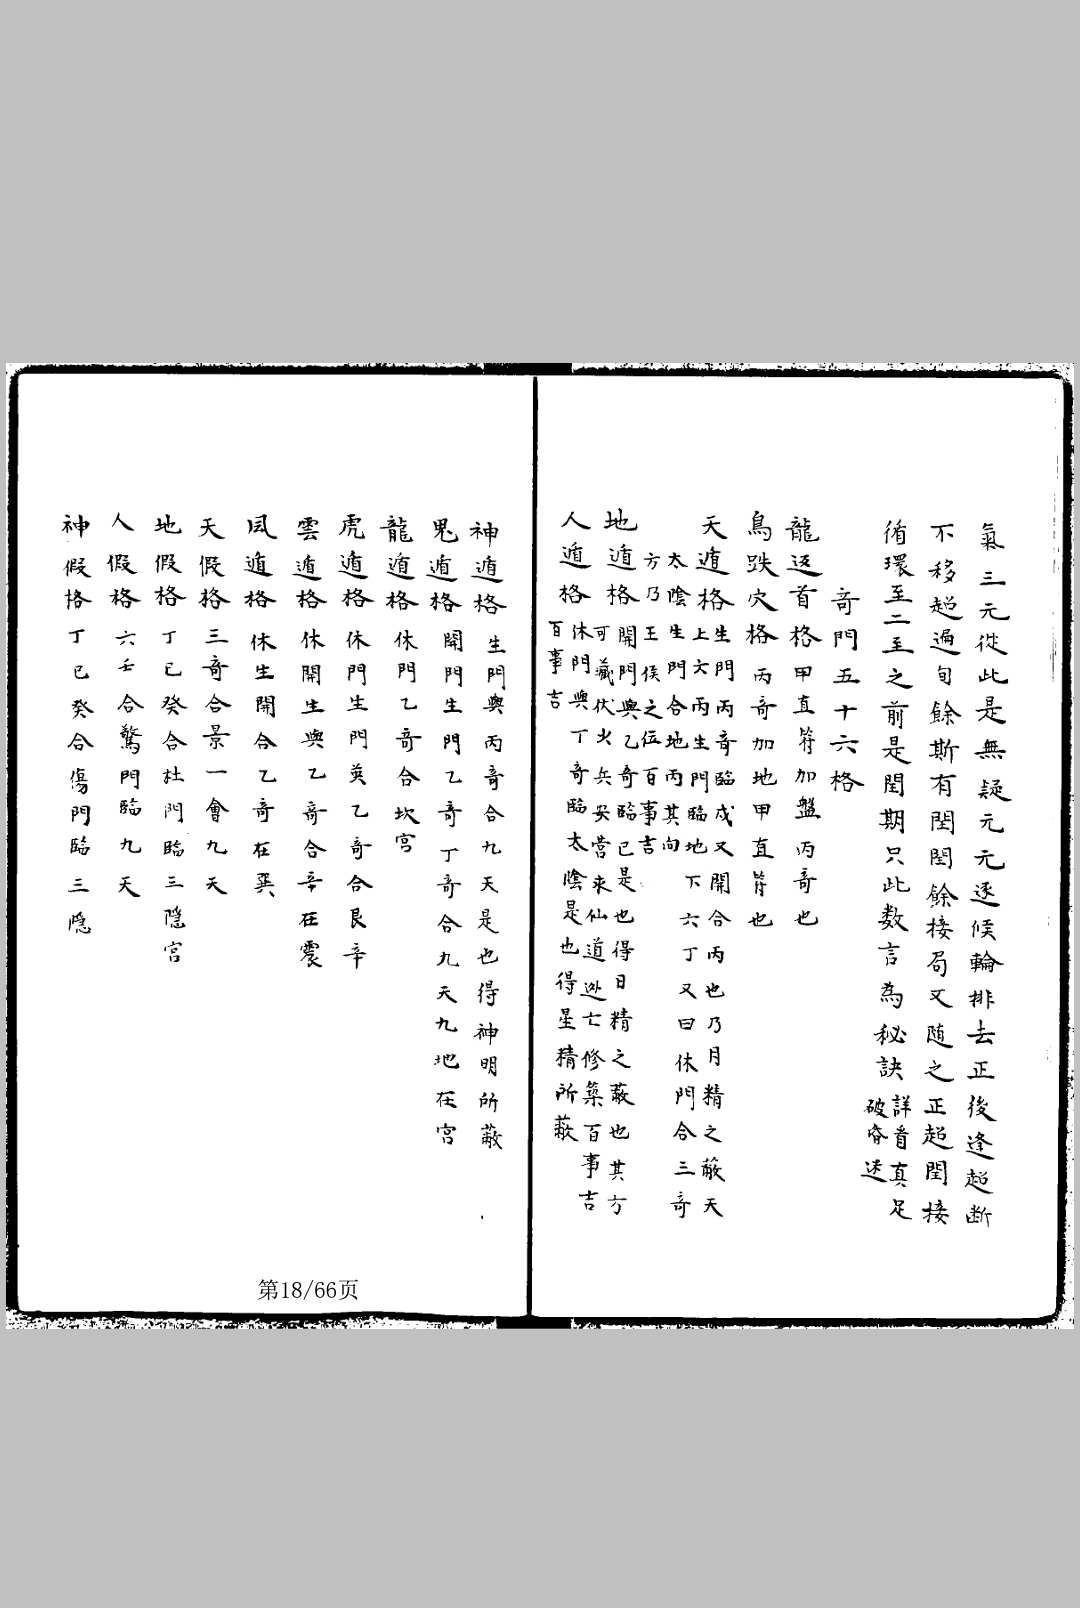 氣三元從此是無疑元元逐候輪排去正後逢超断
不移超遍旬餘斯有閏閏餘接局又随之正超閏接
循環至二至之前是閏期只此数言為秘訣
詳看真足
破昏迷
奇門五十六格
龍返首格甲直符加盤丙奇也
鳥跌穴格丙奇加地甲直符也
天遁格生門丙奇臨戊又開合丙也乃月精之蔽天
上六丙生門臨地下六丁又曰休門合三奇
太陰生門合地丙其向
方乃王侯之位百事吉
地遁格開門與乙奇臨己是也得日精之蔽也其方
可藏伏火兵安營求仙道逃亡修築百事吉
人遁格休門與丁奇臨太陰是也得星精所蔽
百事吉
神遁格生門與丙奇合九天是也得神明所蔽
鬼遁格開門生門乙奇丁奇合九天九地在宮
龍遁格休門乙奇合坎宮
虎遁格休門生門英乙奇合艮辛
雲遁格休開生與乙奇合辛在震
風遁格休生開合乙奇在巽
天假格三奇合景一會九天
地假格丁己癸合杜門臨三隱宮
人假格六壬合驚門臨九天
神假格丁己癸合傷門臨三隱
第18/66页